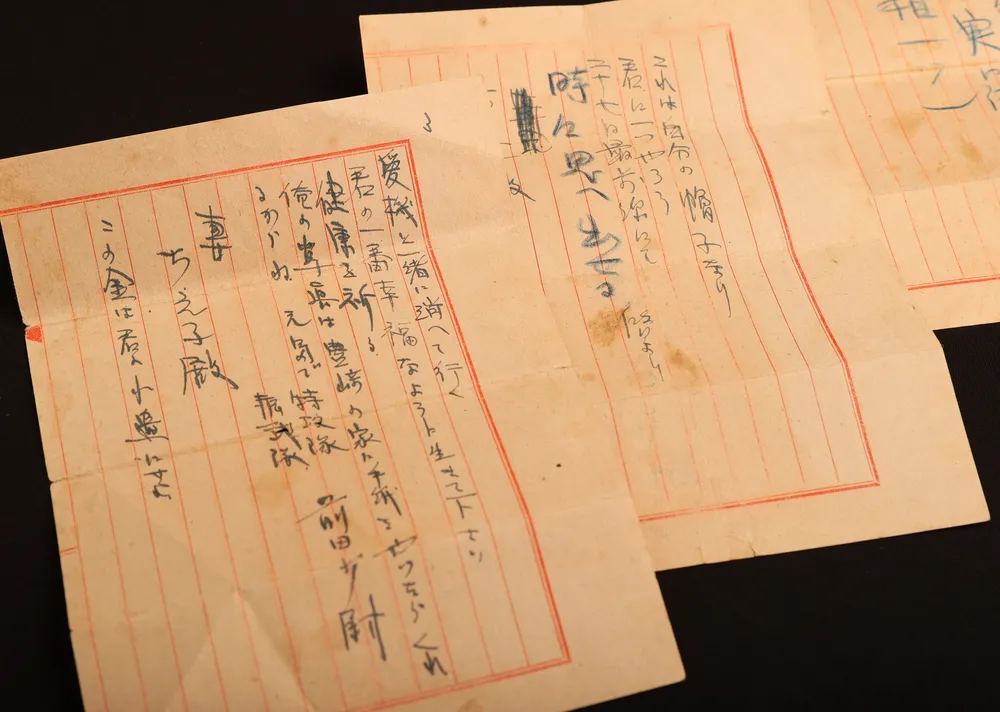 これは自分の帽子なり
君に一つやろう
二十七日最前線にて
時々思へ出せる
3
愛機と一緒に消へて行く
君の一番幸福なように生きて下さい
健康を祈る
俺の写真は豊崎の家に手紙をやったらくれ
るからね 元気で特攻隊
振武隊 前田少尉
妻
ちえ子殿
この金は君へ